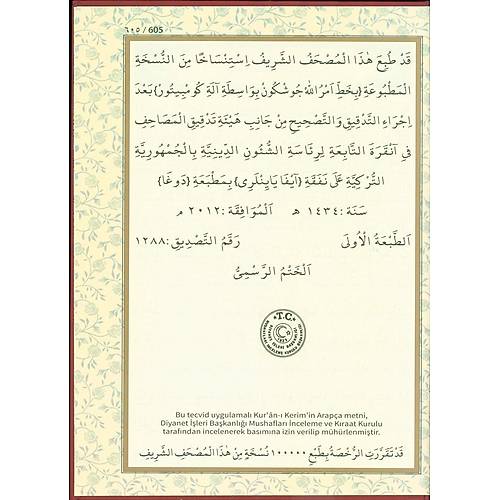 ٦٠٥ / 605
قَدْ طُبِعَ هٰذَا الْمُصْحَفُ الشَّرِيفُ اِسْتِنْسَاخًا مِنَ النُّسْخَةِ
الْمَطْبُوعَةِ {بِخَطِّ اَمْرُ اللّٰهْ جُوشْكُونْ بِوَاسِطَةِ آلَةِ كُومْبِيتُورْ} بَعْدَ
اِجْرَاءِ التَّدْقِيقِ وَالتَّصْحِيحِ مِنْ جَانِبِ هَيْئَةِ تَدْقِيقِ الْمَصَاحِفِ
فِي اَنْقَرَةَ التَّابِعَةِ لِرِئَاسَةِ الشُّئُونِ الدِّينِيَّةِ بِالْجُمْهُورِيَّةِ
التُّرْكِيَّةِ عَلَى نَفَقَةِ {اَيْفَا يَايِنْلَرِى} بِمَطْبَعَةِ {دَوغَا}
سَنَةَ: ١٤٣٤ هـ اَلْمُوَافِقَةَ: ٢٠١٢ م
اَلطَّبْعَةُ الْاُولَى رَقَمُ التَّصْدِيقِ: ١٢٨٨
اَلْخَتْمُ الرَّسْمِىُّ
T.C.
Bu tecvid uygulamalı Kur'ân-ı Kerim'in Arapça metni,
Diyanet İşleri Başkanlığı Mushafları İnceleme ve Kıraat Kurulu
tarafından incelenerek basımına izin verilip mühürlenmiştir.
قَدْ تَقَرَّرَتِ الرُّخْصَةُ بِطَبْعِ ١٠٠٠٠٠ نُسْخَةٍ مِنْ هٰذَا الْمُصْحَفِ الشَّرِيفِ